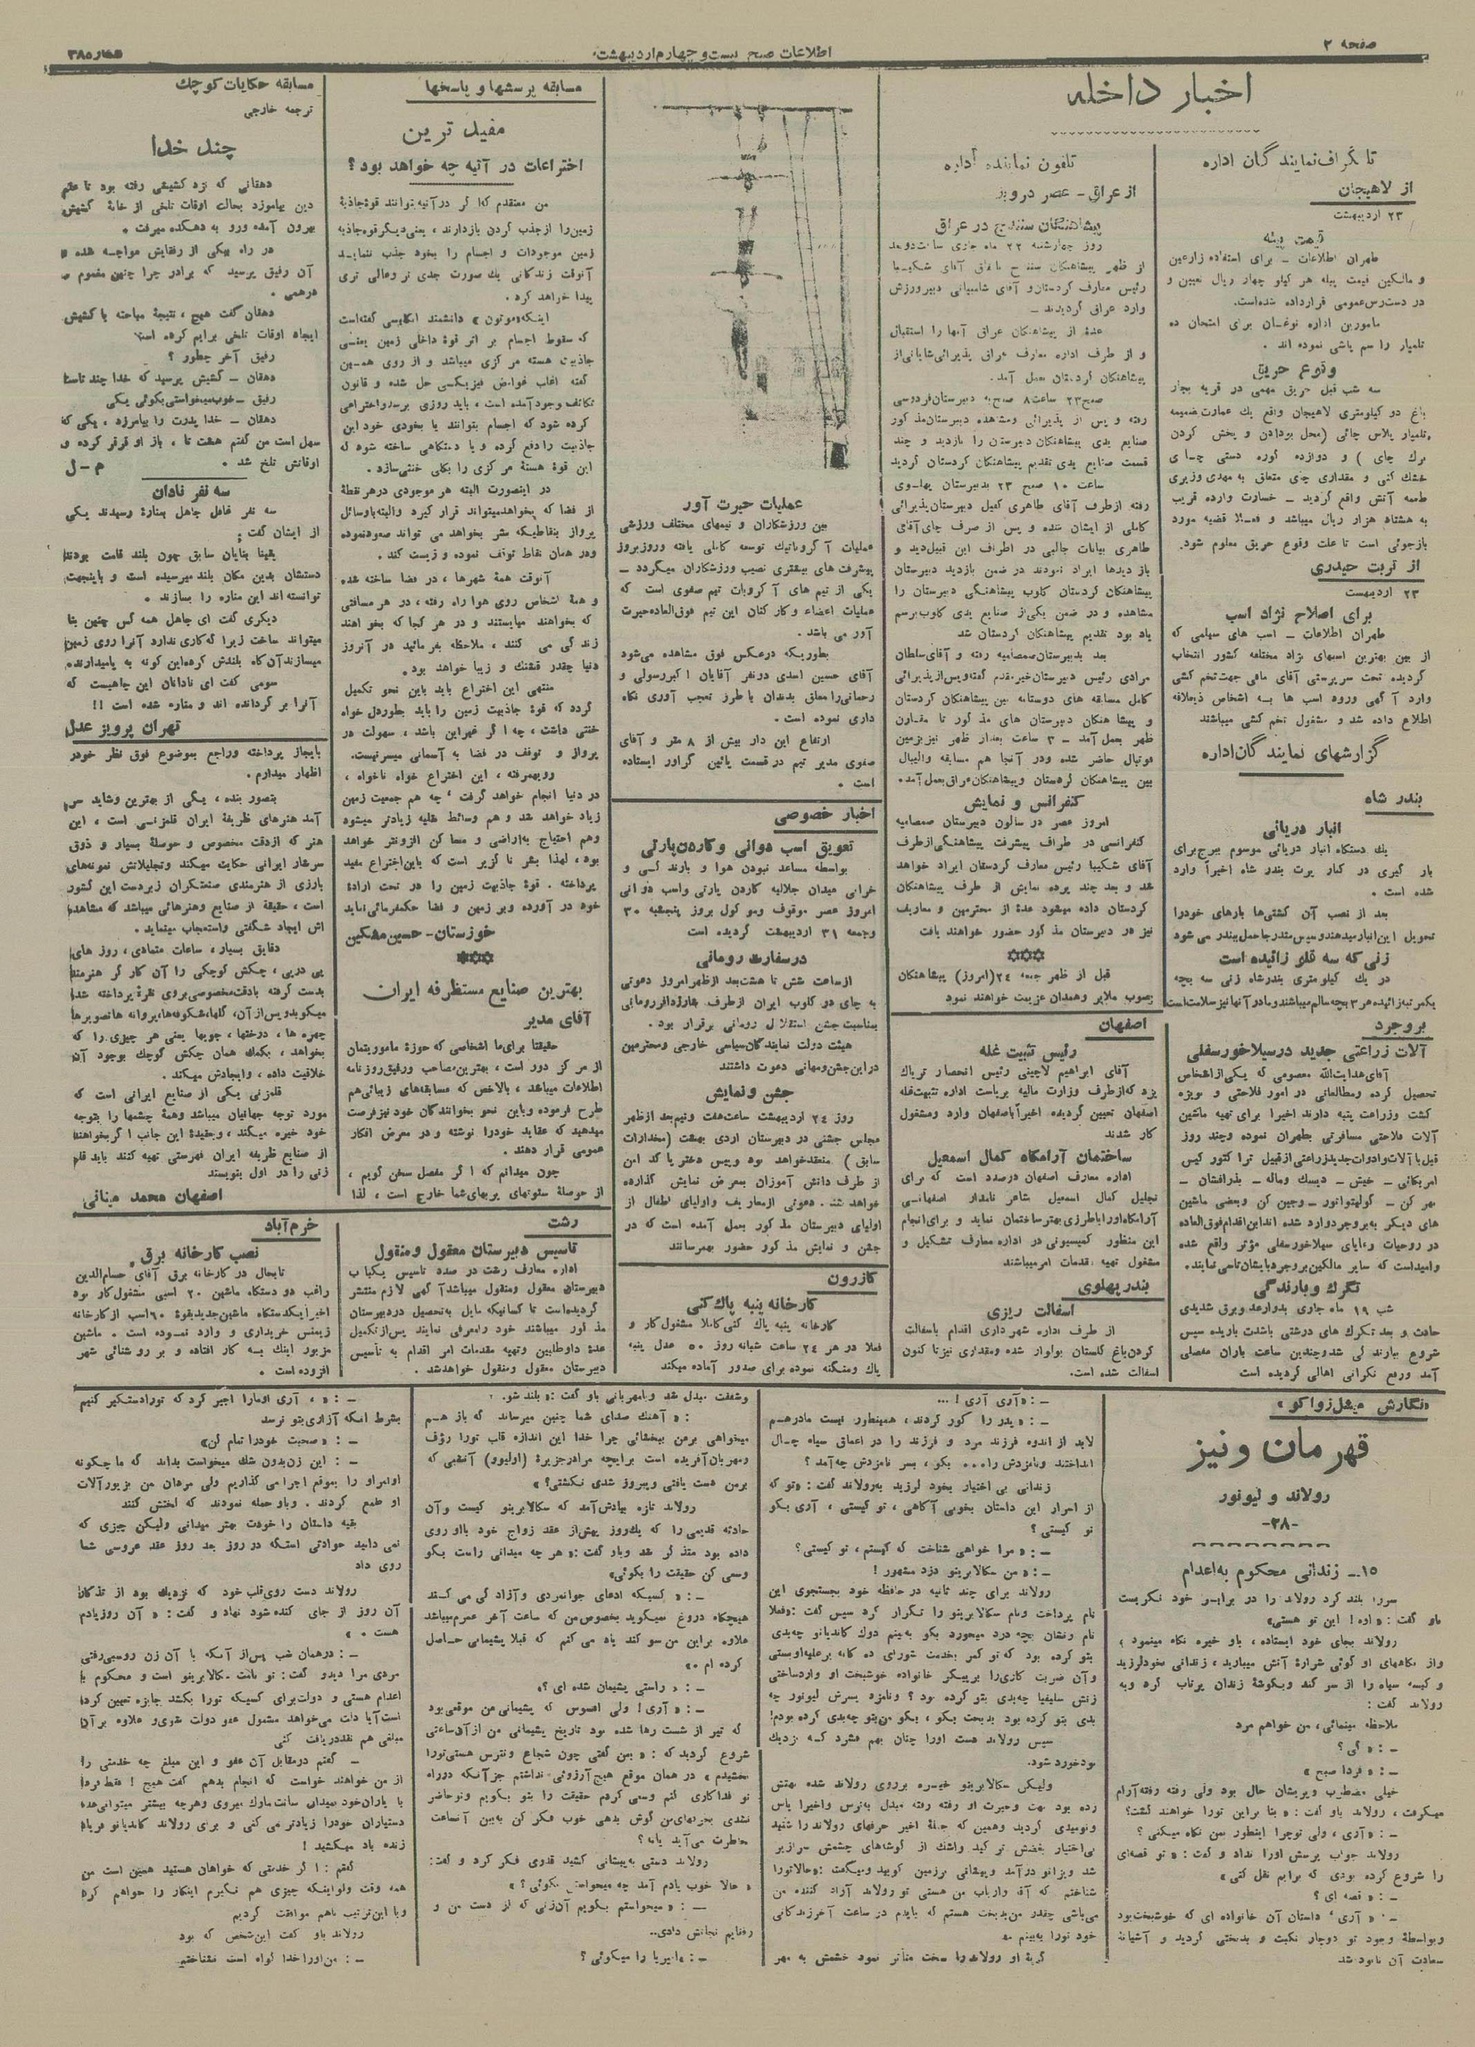 صفحه ۲
اطلاعات صبح بیست و چهارم اردیبهشت
شماره ۳۸۵
اخبار داخله
تلگراف نمایندگان اداره
از لاهیجان
۲۳ اردیبهشت
قیمت پیله
طهران اطلاعات – برای استفاده زارعین
و مالکین قیمت پیله هر کیلو چهار ریال تعیین و
در دسترس عمومی قرار داده شده است.
مامورین اداره نوغان برای امتحان ده
تلمبار را سم پاشی نموده اند .
وقوع حریق
سه شب قبل حریق مهمی در قریه بیجار
باغ دو کیلومتری لاهیجان واقع یک عمارت ضمیمه
تلمبار پلاس چائی (محل بو دادن و پخش کردن
برک چای ) و دوازده کوره دستی چای
خشک کنی و مقداری چای متعلق به مهدی وزیری
طعمه آتش واقع گردید – خسارت وارده قریب
به هشتاد هزار ریال میباشد و فعلا قضیه مورد
بازجوئی است تا علت وقوع حریق معلوم شود.
از تربت حیدری
۲۳ اردیبهشت
برای اصلاح نژاد اسب
طهران اطلاعات – اسب های سیلمی که
از بین بهترین اسبهای نژاد مختلفه کشور انتخاب
گردیده تحت سرپرستی آقای مافی جهت تخم کشی
وارد آگهی ورود اسب ها به اشخاص ذیعلاقه
اطلاع داده شد و مشغول تخم کشی میباشند
گزارشهای نمایندگان اداره
بندر شاه
انبار دریائی
یک دستگاه انبار دریائی موسوم ببرج برای
بار گیری در کنار پرت بندر شاه اخیراً وارد
شده است .
بعد از نصب آن کشتی‌ها بارهای خودرا
تحویل این انبار میدهند و سپس متدرجاً حمل ببندر می شود
زنی که سه قلو زائیده است
در یک کیلو متری بندرشاه زنی سه بچه
یکمرتبه زائیده هر ۳ بچه سالم میباشند و مادر آنها نیز سلامت است
بروجرد
آلات زراعتی جدید در سیلاخور سفلی
آقای هدایت‌الله معصومی که یکی از اشخاص
تحصیل کرده و مطالعاتی در امور فلاحتی و بویژه
کشت وزراعت پنبه دارند اخیرا برای تهیه ماشین
آلات فلاحتی مسافرتی بطهران نموده و چند روز
قبل با آلات و ادوات جدید زراعتی از قبیل تراکتور کیس
امریکائی – خیش – دیسک و ماله – بذرافشان –
بهر کن – کولتیواتور – وجین کن و بعضی ماشین
های دیگر به بروجرد وارد شده اند این اقدام فوق العاده
در روحیات رعایای سیلاخور سفلی مؤثر واقع شده
و امید است که سایر مالکین بروجرد بایشان تأسی نمایند.
تگرک و بارندگی
شب ۱۹ ماه جاری بدواً رعد و برق شدیدی
حادث و بعد تگرک های درشتی باشدت باریده سپس
شروع ببارندگی شد و چندین ساعت باران مفصلی
آمد و رفع نگرانی اهالی گردیده است
تلفون نماینده اداره
از عراق – عصر دیروز
پیشاهنگان سنندج در عراق
روز چهارشنبه ۲۲ ماه جاری ساعت دو بعد
از ظهر پیشاهنگان سنندج باتفاق آقای شکیبا
رئیس معارف کردستان و آقای شامبیاتی دبیر ورزش
وارد عراق گردیدند –
عدهٔ از پیشاهنگان عراق آنها را استقبال
و از طرف اداره معارف عراق پذیرائی شایانی از
پیشاهنگان کردستان بعمل آمد .
صبح ۲۳ ساعت ۸ صبح به دبیرستان فردوسی
رفته و پس از پذیرائی و مشاهده دبیرستان مذکور
صنایع یدی پیشاهنگان دبیرستان را بازدید و چند
قسمت صنایع یدی تقدیم پیشاهنگان کردستان گردید
ساعت ۱۰ صبح ۲۳ بدبیرستان پهلوی
رفته از طرف آقای طاهری کفیل دبیرستان پذیرائی
کاملی از ایشان شده و پس از صرف چای آقای
طاهری بیانات جالبی در اطراف این قبیل دید و
باز دیدها ایراد نمودند در ضمن بازدید دبیرستان
پیشاهنگان کردستان کلوب پیشاهنگی دبیرستان را
مشاهده و در ضمن یکی از صنایع یدی کلوب برسم
یاد بود تقدیم پیشاهنگان کردستان شد
بعد بدبیرستان صمصامیه رفته و آقای سلطان
مرادی رئیس دبیرستان خیر مقدم گفته و پس از پذیرائی
کامل مسابقه های دوستانه بین پیشاهنگان کردستان
و پیشاهنگان دبیرستان های مذکور تا مقارن
ظهر بعمل آمد – ۳ ساعت بعد از ظهر نیز بزمین
فوتبال حاضر شده و در آنجا هم مسابقه والیبال
بین پیشاهنگان کردستان و پیشاهنگان عراق بعمل آمد.
کنفرانس و نمایش
امروز عصر در سالون دبیرستان صمصامیه
کنفرانسی در طراف پیشرفت پیشاهنگی از طرف
آقای شکیبا رئیس معارف کردستان ایراد خواهد
شد و بعد چند پرده نمایش از طرف پیشاهنگان
کردستان داده میشود عدهٔ از محترمین و معاریف
نیز در دبیرستان مذکور حضور خواهند یافت
قبل از ظهر جمعه ۲۴ (امروز) پیشاهنگان
بصوب ملایر و همدان عزیمت خواهند نمود
اصفهان
رئیس تثبیت غله
آقای ابراهیم لاچینی رئیس انحصار تریاک
یزد که از طرف وزارت مالیه بریاست اداره تثبیت غله
اصفهان تعیین گردیده اخیراً باصفهان وارد و مشغول
کار شدند
ساختمان آرامگاه کمال اسمعیل
اداره معارف اصفهان درصدد است که برای
تجلیل کمال اسمعیل شاعر نامدار اصفهانی
آرامگاه او را با طرزی بهتر ساختمان نماید و برای انجام
این منظور کمیسیونی در اداره معارف تشکیل و
مشغول تهیه مقدمات امر میباشند
بندر پهلوی
اسفالت ریزی
از طرف اداره شهرداری اقدام باسفالت
کردن باغ گلستان بولوار شده و مقداری نیز تا کنون
اسفالت شده است.
عملیات حیرت آور
بین ورزشکاران و تیمهای مختلف ورزشی
عملیات آکروباتیک توسعه کاملی یافته و روزبروز
پیشرفت های بیشتری نصیب ورزشکاران میگردد –
یکی از تیم های آکروبات تیم صفوی است که
عملیات اعضاء و کارکنان این تیم فوق العاده حیرت
آور می باشد .
بطوریکه درعکس فوق مشاهده می‌شود
آقای حسین اسدی دو نفر آقایان اکبر رسولی و
رحمانی را معلق بدندان با طرز تعجب آوری نگاه
داری نموده است .
ارتفاع این دار بیش از ۸ متر و آقای
صفوی مدیر تیم در قسمت پائین گراور ایستاده
است .
اخبار خصوصی
تعویق اسب دوانی و گاردن پارتی
بواسطه مساعد نبودن هوا و بارندگی و
خرابی میدان جلالیه گاردن پارتی واسب دوانی
امروز عصر موقوف و موکول بروز پنجشنبه ۳۰
وجمعه ۳۱ اردیبهشت گردیده است
در سفارت رومانی
از ساعت شش تا هشت بعد از ظهر امروز دعوتی
به چای در کلوب ایران از طرف شارژ دافر رومانی
بمناسبت جشن استقلال رومانی برقرار بود .
هیئت دولت نمایندگان سیاسی خارجی و محترمین
در این جشن و مهمانی دعوت داشتند
جشن و نمایش
روز ۲۴ اردیبهشت ساعت هفت و نیم بعد از ظهر
مجلس جشنی در دبیرستان اردی بهشت (مخدارات
سابق ) منعقد خواهد بود و پیس دختر پاکدامن
از طرف دانش آموزان بمعرض نمایش گذارده
خواهد شد. دعوتی از معاریف و اولیای اطفال از
اولیای دبیرستان مذکور بعمل آمده است که در
جشن و نمایش مذکور حضور بهمرسانند
کازرون
کارخانه پنبه پاک کنی
کارخانه پنبه پاک کنی کاملا مشغول کار و
فعلا در هر ۲۴ ساعت شبانه روز ۵۰ عدل پنبه
پاک و منگنه نموده برای صدور آماده میکند
مسابقه پرسشها و پاسخها
مفید ترین
اختراعات در آتیه چه خواهد بود ؟
من معتقدم که اگر در آتیه بتوانند قوهٔ جاذبهٔ
زمین را از جذب کردن بازدارند ، یعنی دیگر قوه جاذبه
زمین موجودات و اجسام را بخود جذب ننماید
آنوقت زندگانی یک صورت جدی تر و عالی تری
پیدا خواهد کرد.
اینکه «نوتون» دانشمند انگلیسی گفته است
که سقوط اجسام بر اثر قوهٔ داخلی زمین یعنی
جاذبیت هسته مرکزی میباشد و از روی همین
گفته اغلب غوامض فیزیکی حل شده و قانون
تکاثف وجود آمده است ، باید روزی برسد واختراعی
کرده شود که اجسام بتوانند یا بخودی خود این
جاذبیت را دفع کرده و یا دستگاهی ساخته شود که
این قوهٔ هستهٔ مرکزی را بکلی خنثی سازد .
در اینصورت البته هر موجودی در هر نقطهٔ
از فضا که بخواهد میتواند قرار گیرد والبته با وسائل
پرواز بنقاطیکه بشر بخواهد می تواند صعود نموده
و در همان نقاط توقف نموده و زیست کند .
آنوقت همهٔ شهرها ، در فضا ساخته شده
و همهٔ اشخاص روی هوا راه رفته ، در هر مسافتی
که بخواهند میایستند و در هر کجا که بخواهند
زندگی می کنند ، ملاحظه بفرمائید در آنروز
دنیا چقدر قشنگ و زیبا خواهد بود.
منتهی این اختراع باید باین نحو تکمیل
گردد که قوهٔ جاذبیت زمین را باید بطور دلخواه
خنثی داشت ، چه اگر غیر این باشد ، سهولت در
پرواز و توقف در فضا به آسمانی میسر نیست.
رویهمرفته ، این اختراع خواه ناخواه ،
در دنیا انجام خواهد گرفت ، چه هم جمعیت زمین
زیاد خواهد شد و هم وسائط نقلیه زیادتر میشود
وهم احتیاج به اراضی و مساکن افزونتر خواهد
بود ، لهذا بشر ناگزیر است که باین اختراع مفید
پرداخته . قوهٔ جاذبیت زمین را در تحت ارادهٔ
خود در آورده و بر زمین و فضا حکمفرمائی نماید
خوزستان – حسین مشکین
بهترین صنایع مستظرفه ایران
آقای مدیر
حقیقتا برای ما اشخاصی که حوزهٔ ماموریتمان
از مرکز دور است ، بهترین مصاحب و رفیق روزنامه
اطلاعات میباشد ، بالاخص که مسابقه‌های زیبائی هم
طرح فرموده و باین نحو بخوانندگان خود نیز فرصت
میدهید که عقاید خودرا نوشته و در معرض افکار
عمومی قرار دهند .
چون میدانم که اگر مفصل سخن گویم ،
از حوصلهٔ ستونهای پربهای شما خارج است ، لذا
رشت
تاسیس دبیرستان معقول و منقول
اداره معارف رشت در صدد تاسیس یکباب
دبیرستان معقول و منقول میباشد آگهی لازم منتشر
گردیده است تا کسانیکه مایل به تحصیل در دبیرستان
مذکور میباشند خود را معرفی نمایند پس از تکمیل
عدهٔ داوطلبین و تهیه مقدمات امر اقدام به تأسیس
دبیرستان معقول و منقول خواهد شد.
مسابقه حکایات کوچک
ترجمه خارجی
چند خدا
دهقانی که نزد کشیشی رفته بود تا علم
دین بیاموزد بحالت اوقات تلخی از خانهٔ کشیش
بیرون آمده و رو به دهکده میرفت .
در راه بیکی از رفقایش مواجه شده ،
آن رفیق پرسید که برادر چرا چنین مغموم و
درهمی .
دهقان گفت هیچ ، نتیجهٔ مباحثه با کشیش
ایجاد اوقات تلخی برایم کرده است
رفیق آخر چطور ؟
دهقان – کشیش پرسید که خدا چند تاست
رفیق – خوب میخواستی بگوئی یکی
دهقان – خدا پدرت را بیامرزد ، یکی که
سهل است من گفتم هشت تا ، باز او قرقر کرده و
اوقاتش تلخ شد .
م – ل
سه نفر نادان
سه نفر غافل جاهل بمنارهٔ رسیدند یکی
از ایشان گفت :
یقینا بنایان سابق چون بلند قامت بودند
دستشان بدین مکان بلند میرسیده است و باینجهت
توانسته اند این مناره را بسازند .
دیگری گفت ای جاهل همه کس چنین بنا
میتواند ساخت زیرا که کاری ندارد آنرا روی زمین
میسازند آنگاه بلندش کرده این گونه به پا میدارند.
سومی گفت ای نادانان این چاهیست که
آنرا بر گردانده اند و مناره شده است !!
تهران پرویز عدل
بایجاز پرداخته و راجع بموضوع فوق نظر خودر
اظهار میدارم .
بتصور بنده ، یکی از بهترین و شاید سر
آمد هنرهای ظریفهٔ ایران قلمزنی است ، این
هنر که از دقت مخصوص و حوصلهٔ بسیار و ذوق
سرشار ایرانی حکایت میکند و تجلیلاتش نمونه‌های
بارزی از هنرمندی صنعتگران زبردست این کشور
است ، حقیقة از صنایع و هنرهائی میباشد که مشاهده
اش ایجاد شگفتی و استعجاب مینماید .
دقایق بسیار ، ساعات متمادی ، روز های
پی درپی ، چکش کوچکی را آن کار گر هنرمند
بدست گرفته با دقت مخصوصی بروی نقرهٔ پرداخته شده
میکوبد و پس از آن، گلها، شکوفه‌ها، پروانه ها تصویرها
چهره ها ، درختها ، جویها یعنی هر چیزی را که
بخواهد ، بکمک همان چکش کوچک بوجود آن
خلاقیت داده ، و ایجادش میکند.
قلمزنی یکی از صنایع ایرانی است که
مورد توجه جهانیان میباشد و همهٔ چشمها را بتوجه
خود خیره میکند ، و بعقیدهٔ این جانب اگر بخواهند
از صنایع ظریفه ایران فهرستی تهیه کنند باید قلم
زنی را در اول بنویسند
اصفهان محمد مینائی
خرم‌آباد
نصب کارخانه برق
تابحال در کارخانه برق آقای حسام‌الدین
راغب دو دستگاه ماشین ۲۰ اسبی مشغول کار بود
اخیراً یکدستگاه ماشین جدید بقوهٔ ۹۰ اسب از کارخانه
زیمنس خریداری و وارد نموده است . ماشین
مزبور اینک به کار افتاده و بر روشنائی شهر
افزوده است .
«نگارش میشل زواکو»
قهرمان ونیز
رولاند و لیونور
-۲۸-
۱۵ – زندانی محکوم به اعدام
سر را بلند کرد رولاند را در برابر خود نگریست
باو گفت : « اوه ! این تو هستی»
رولاند بجای خود ایستاده ، باو خیره نگاه مینمود ،
و از نگاههای او گوئی شرارهٔ آتش میبارید ، زندانی بخود لرزید
و کیسه سیاه را از سر کند و بگوشهٔ زندان پرتاب کرد و به
رولاند گفت :
ملاحظه مینمائی ، من خواهم مرد
– : « کی ؟
– : « فردا صبح »
خیلی مضطرب و پریشان حال بود ولی رفته رفته آرام
میگرفت ، رولاند باو گفت : « بنا براین تورا خواهند کشت؟
– : « آری ، ولی تو چرا اینطور بمن نگاه میکنی ؟
رولاند جواب پرسش اورا نداد و گفت : « تو قصه‌ای
را شروع کرده بودی که برایم نقل کنی »
– : « قصه ای ؟
– : « آری ، داستان آن خانواده ای که خوشبخت بود
و بواسطهٔ وجود تو دوچار نکبت و بدبختی گردید و آشیانهٔ
سعادت آن نابود شد
– : « آری آری ! ...
– : « پدر را کور کردند ، همینطور نیست مادر هم
لابد از اندوه فرزند مرد و فرزند را در اعماق سیاه چال
انداختند و نامزدش را ... بگو ، بسر نامزدش چه آمد ؟
زندانی بی اختیار بخود لرزید به رولاند گفت : « تو که
از اسرار این داستان بخوبی آگاهی ، تو کیستی ، آری بگو
تو کیستی ؟
– : « مرا خواهی شناخت که کیستم ، تو کیستی ؟
– : « من سکالابرینو دزد مشهور !
رولاند برای چند ثانیه در حافظه خود بجستجوی این
نام پرداخت و نام سکالابرینو را تکرار کرد سپس گفت : «فعلا
نام و نشان بچه درد میخورد بگو به بینم دوک کاندیانو چه بدی
بتو کرده بود که تو کمر بخدمت شورای ده گانه بر علیه او بستی
و آن ضربت کاری را بر پیکر خانواده خوشبخت او وارد ساختی
زنش سیلفیا چه بدی بتو کرده بود ؟ و نامزد پسرش لیونور چه
بدی بتو کرده بود بدبخت بگو ، بگو من بتو چه بدی کرده بودم!
سپس رولاند دست اورا چنان بهم فشرد که نزدیک
بود خورد شود.
ولیکن سکالابرینو خیره بر روی رولاند شده بهتش
زده بود بهت و حیرت او رفته رفته مبدل به ترس و اخیرا یاس
و نومیدی گردید و همین که جملهٔ اخیر حرفهای رولاند را شنید
بی‌اختیار بغضش ترکید و اشک از گوشه‌های چشمش سرازیر
شد و بزانو درآمد و پیشانی بر زمین کوبید و میگفت: «حالا تورا
شناختم که آقا و ارباب من هستی تو رولاند آزاد کننده من
می‌باشی چقدر من بدبخت هستم که بایدم در ساعت آخر زندگانی
خود تورا به بینم »
گریهٔ او رولاند را سخت متأثر نمود خشمش به مهر
وشفقت مبدل شد و با مهربانی باو گفت : « بلند شو.
: « آهنک صدای شما چنین میرساند که باز هم
میخواهی بر من ببخشائی چرا خدا این اندازه قلب تورا رؤف
و مهربان آفریده است برای چه مرا در جزیرهٔ (اولیوو) آنشبی که
بر من دست یافتی و پیروز شدی نکشتی؟ »
رولاند تازه بیادش آمد که سکالابرینو کیست و آن
حادثه قدیمی را که یک روز پیش از عقد زواج خود با او روی
داده بود متذکر شد و باو گفت: « هر چه میدانی راست بگو
وسعی کن حقیقت را بگوئی»
– : « کسیکه ادعای جوانمردی و آزادگی می کند
هیچگاه دروغ نمیگوید بخصوص من که ساعت آخر عمرم میباشد
علاوه براین من سوگند یاد می کنم که قبلا پشیمانی حاصل
کرده ام »
– : « راستی پشیمان شده ای ؟ »
– : « آری ! ولی افسوس که پشیمانی من موقعی بود
که تیر از شست رها شده بود تاریخ پشیمانی من از آن ساعتی
شروع گردید که : « بمن گفتی چون شجاع و نترس هستی تورا
بخشیدم » در همان موقع هیچ آرزوئی نداشتم جز آنکه در راه
تو فداکاری کنم وسعی کردم حقیقت را بتو بگویم و تو حاضر
نشدی بحرفهای من گوش بدهی خوب فکر کن به بین آنساعت
بخاطرت می‌آید یا نه؟
رولاند دستی به پیشانی کشید قدری فکر کرد و گفت:
« حالا خوب یادم آمد چه میخواستی بگوئی ؟ »
– : « میخواستم بگویم آن زنی که از دست من و
رفقایم نجاتش دادی..
– : « ایمپریا را میگوئی ؟
– : « ، آری او مارا اجیر کرد که تورا دستگیر کنیم
بشرط اینکه آزاری بتو نرسد
– : « صحبت خودرا تمام کن»
– : « این زن بدون شک میخواست بداند که ما چگونه
اوامر او را بموقع اجرا می گذاریم ولی مردان من بزیور آلات
او طمع کردند . و باو حمله نمودند که لختش کنند
بقیه داستان را خودت بهتر میدانی ولیکن چیزی که
نمی دانید حوادثی استکه در روز بعد روز عقد عروسی شما
روی داد
رولاند دست روی قلب خود که نزدیک بود از تذکار
آن روز از جای کنده شود نهاد و گفت : « آن روز یادم
هست . »
– : « در همان شب پس از آنکه با آن زن روسپی رفتی
مردی مرا دید و گفت : تو نامت سکالابرینو است و محکوم به
اعدام هستی و دولت برای کسیکه تورا بکشد جایزه تعیین کرده
است آیا دلت می‌خواهد مشمول عفو دولت شوی و علاوه بر آن
مبلغی هم نقد دریافت کنی
– گفتم در مقابل آن عفو و این مبلغ چه خدمتی را
از من خواهند خواست که انجام بدهم گفت هیچ ! فقط فردا
با یاران خود بمیدان سانت مارک میروی و هرچه بیشتر میتوانی عده
دستیاران خودرا زیادتر می کنی و برای رولاند کاندیانو فریاد
زنده باد میکشید !
گفتم : اگر خدمتی که خواهان هستید همین است من
همه وقت ولو اینکه چیزی هم نگیرم اینکار را خواهم کرد
و باین ترتیب باهم موافقت کردیم
رولاند باو گفت این شخص که بود
– : من اورا خدا گواه است نشناختم